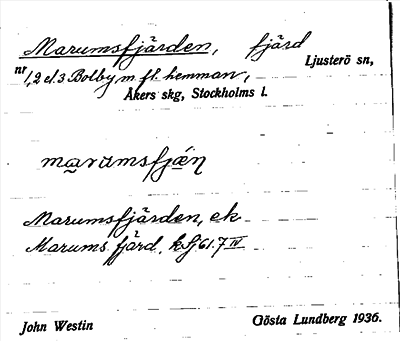 Marumsfjärden, fjärd
Ljusterö sn,
nr 1, 2 el. 3 Bolby m fl. hemman,
Åkers skg, Stockholms l.
marumsfjän
Marumsfjärden, ek
Marums fjärd, kSj 61. 7 IV
John Westin
Gösta Lundberg 1936.